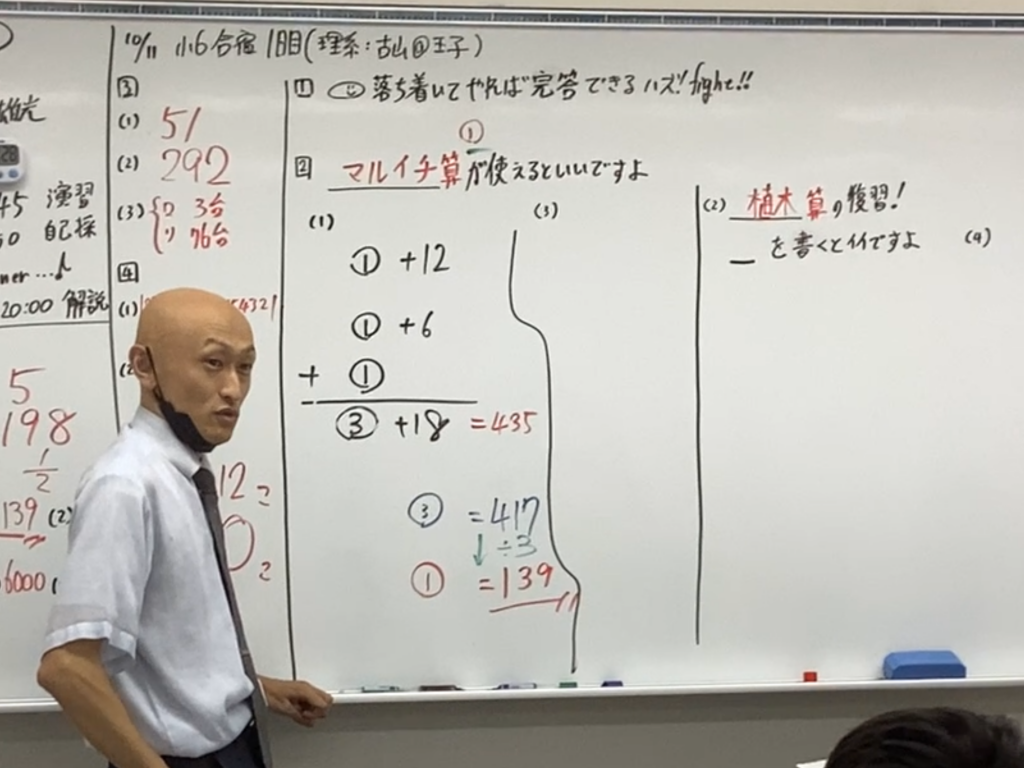 45 演習
自己採
ner…♪
20:00 解説
5
198
1/2
139 (2)
6000
10/11 小6合宿1日目(理系:古山@王子)
③
(1) 51
(2) 292
(3) ワ 3台
ツ 76台
④
(1) 54321
12
①
落ち着いてやれば完答できるハズ!fight!!
①
② マルイチ算が使えるといいですよ
(1)
① +12
① +6
+ ①
③ +18 =435
③ =417
↓÷3
① =139
(3)
(2) 植木算の復習!
_を書くとイイですよ
(4)